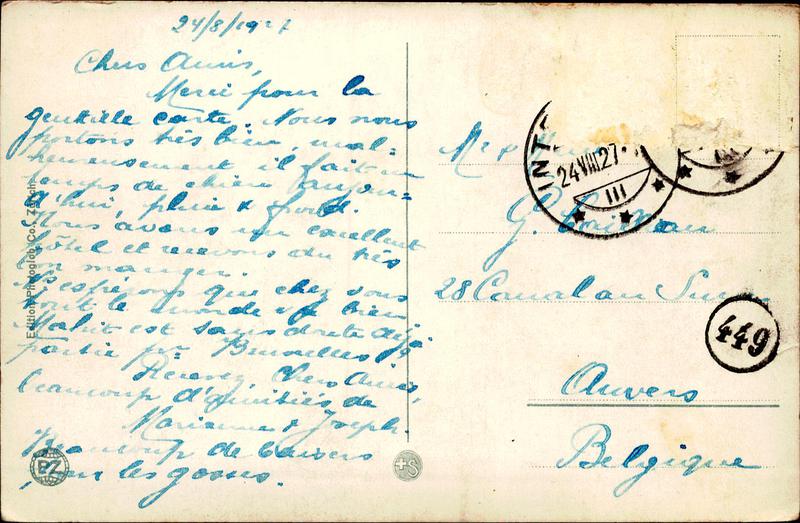 24/8/1927
Chers Amis,
Merci pour la
gentille carte. Nous nous
portons très bien, mal-
heureusement il fait un
temps de chien aujour-
d'hui, pluie & froid.
Nous avons un excellent
hôtel et recevons du très
bon manger.
Ns espérons que chez vous
tout le monde va bien
est sans doute déjà
partie pr Bruxelles?
Recevez, Chers Amis,
beaucoup d'amitiés de
Marianne & Joseph.
Beaucoup de baisers
pour les gosses.
Edition Photoglob Co., Zürich
PZ
+S
INT
24 VIII 27
III
III
Mr &
G.
28 Canal au
449
Anvers
Belgique